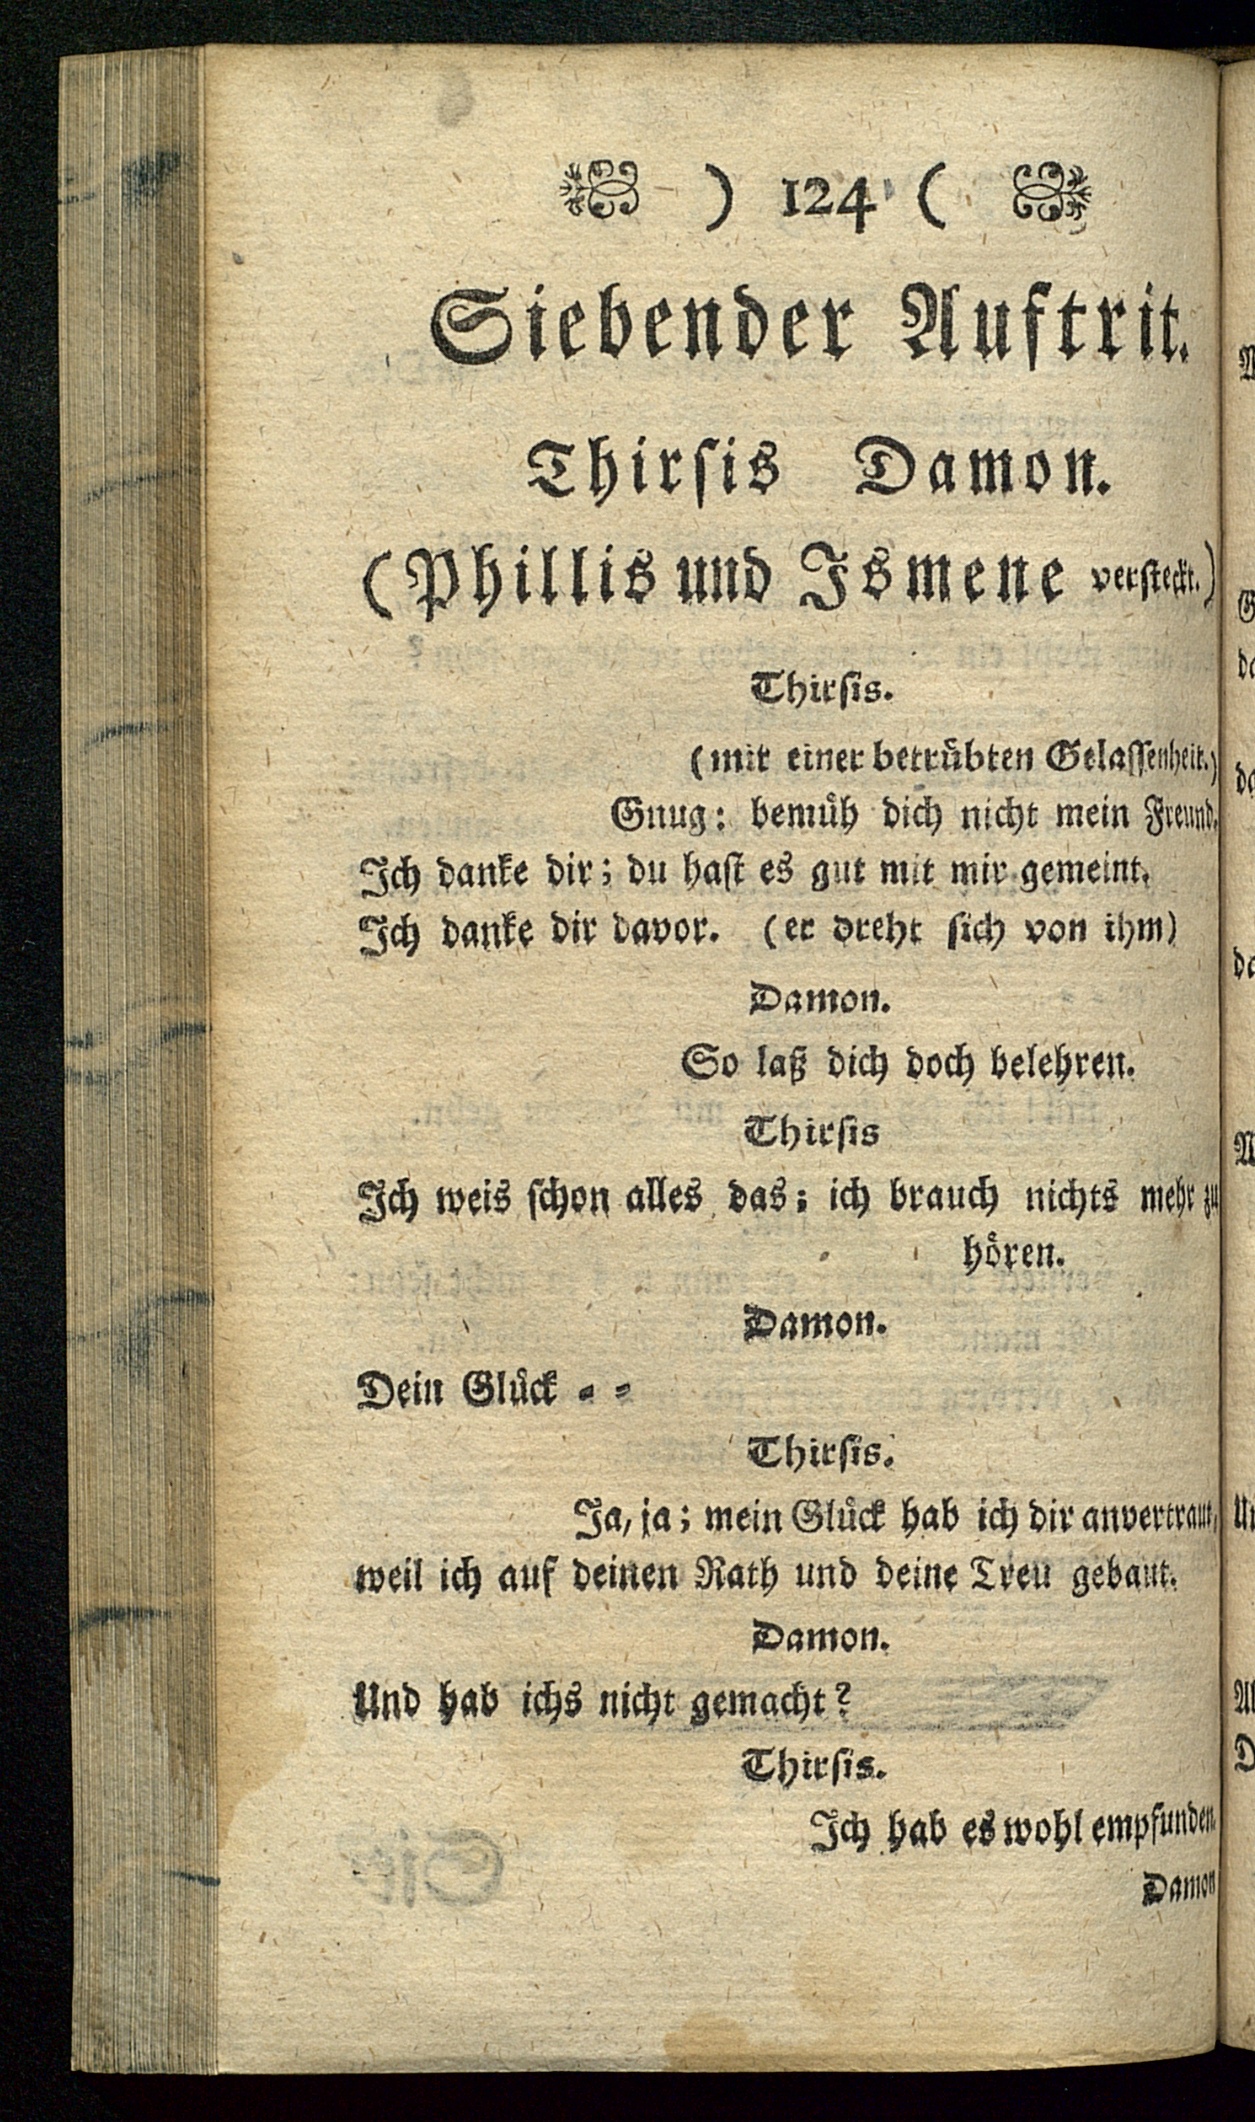 ) 124 (
Siebender Auftrit.
Thirsis Damon.
(Phillis und Ismene versteckt.)
Thirsis.
(mit einer betrübten Gelassenheit.)
Gnug: bemüh dich nicht mein Freund.
Ich danke dir; du hast es gut mit mir gemeint.
Ich danke dir davor. (er dreht sich von ihm)
Damon.
So laß dich doch belehren.
Thirsis
Ich weis schon alles das; ich brauch nichts mehr zu
hören.
Damon.
Dein Glück - -
Thirsis.
Ja, ja; mein Glück hab ich dir anvertraut,
weil ich auf deinen Rath und deine Treu gebaut.
Damon.
Und hab ichs nicht gemacht?
Thirsis.
Ich hab es wohl empfunden.
Damon